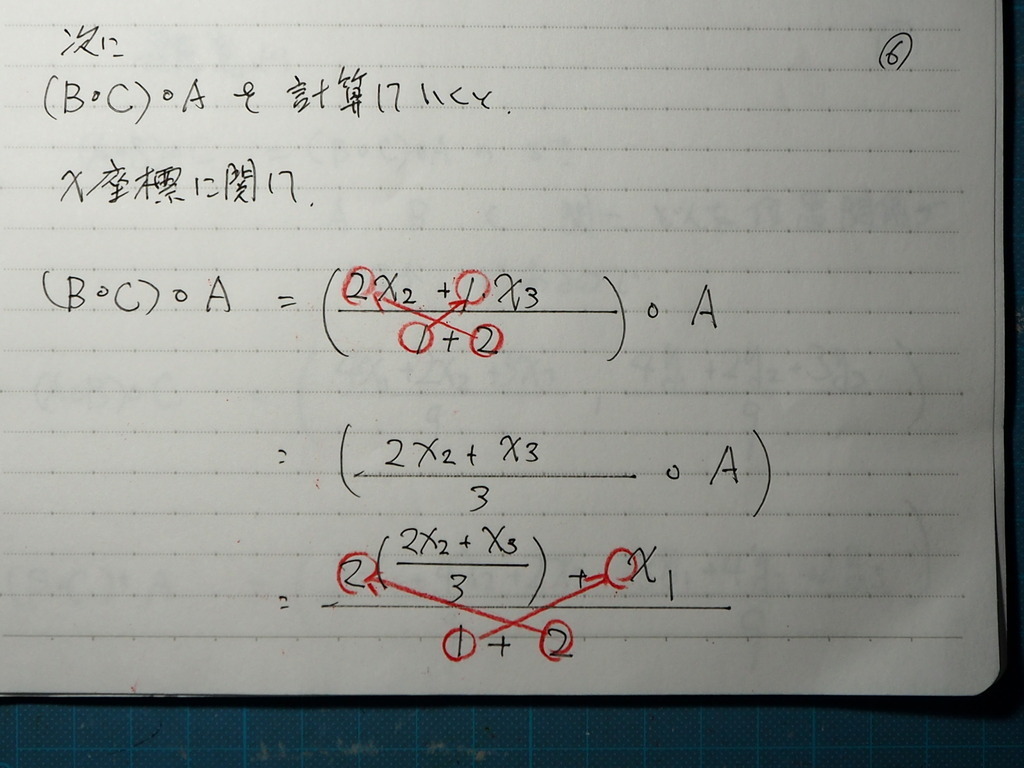 次に
⑥
(B∘C)∘A を計算していくと.
x座標に関して.
(B∘C)∘A = ( (2x₂ + 1·x₃) / (1 + 2) ) ∘ A
= ( (2x₂ + x₃) / 3 ∘ A )
= ( 2( (2x₂ + x₃) / 3 ) + x₁ ) / (1 + 2)